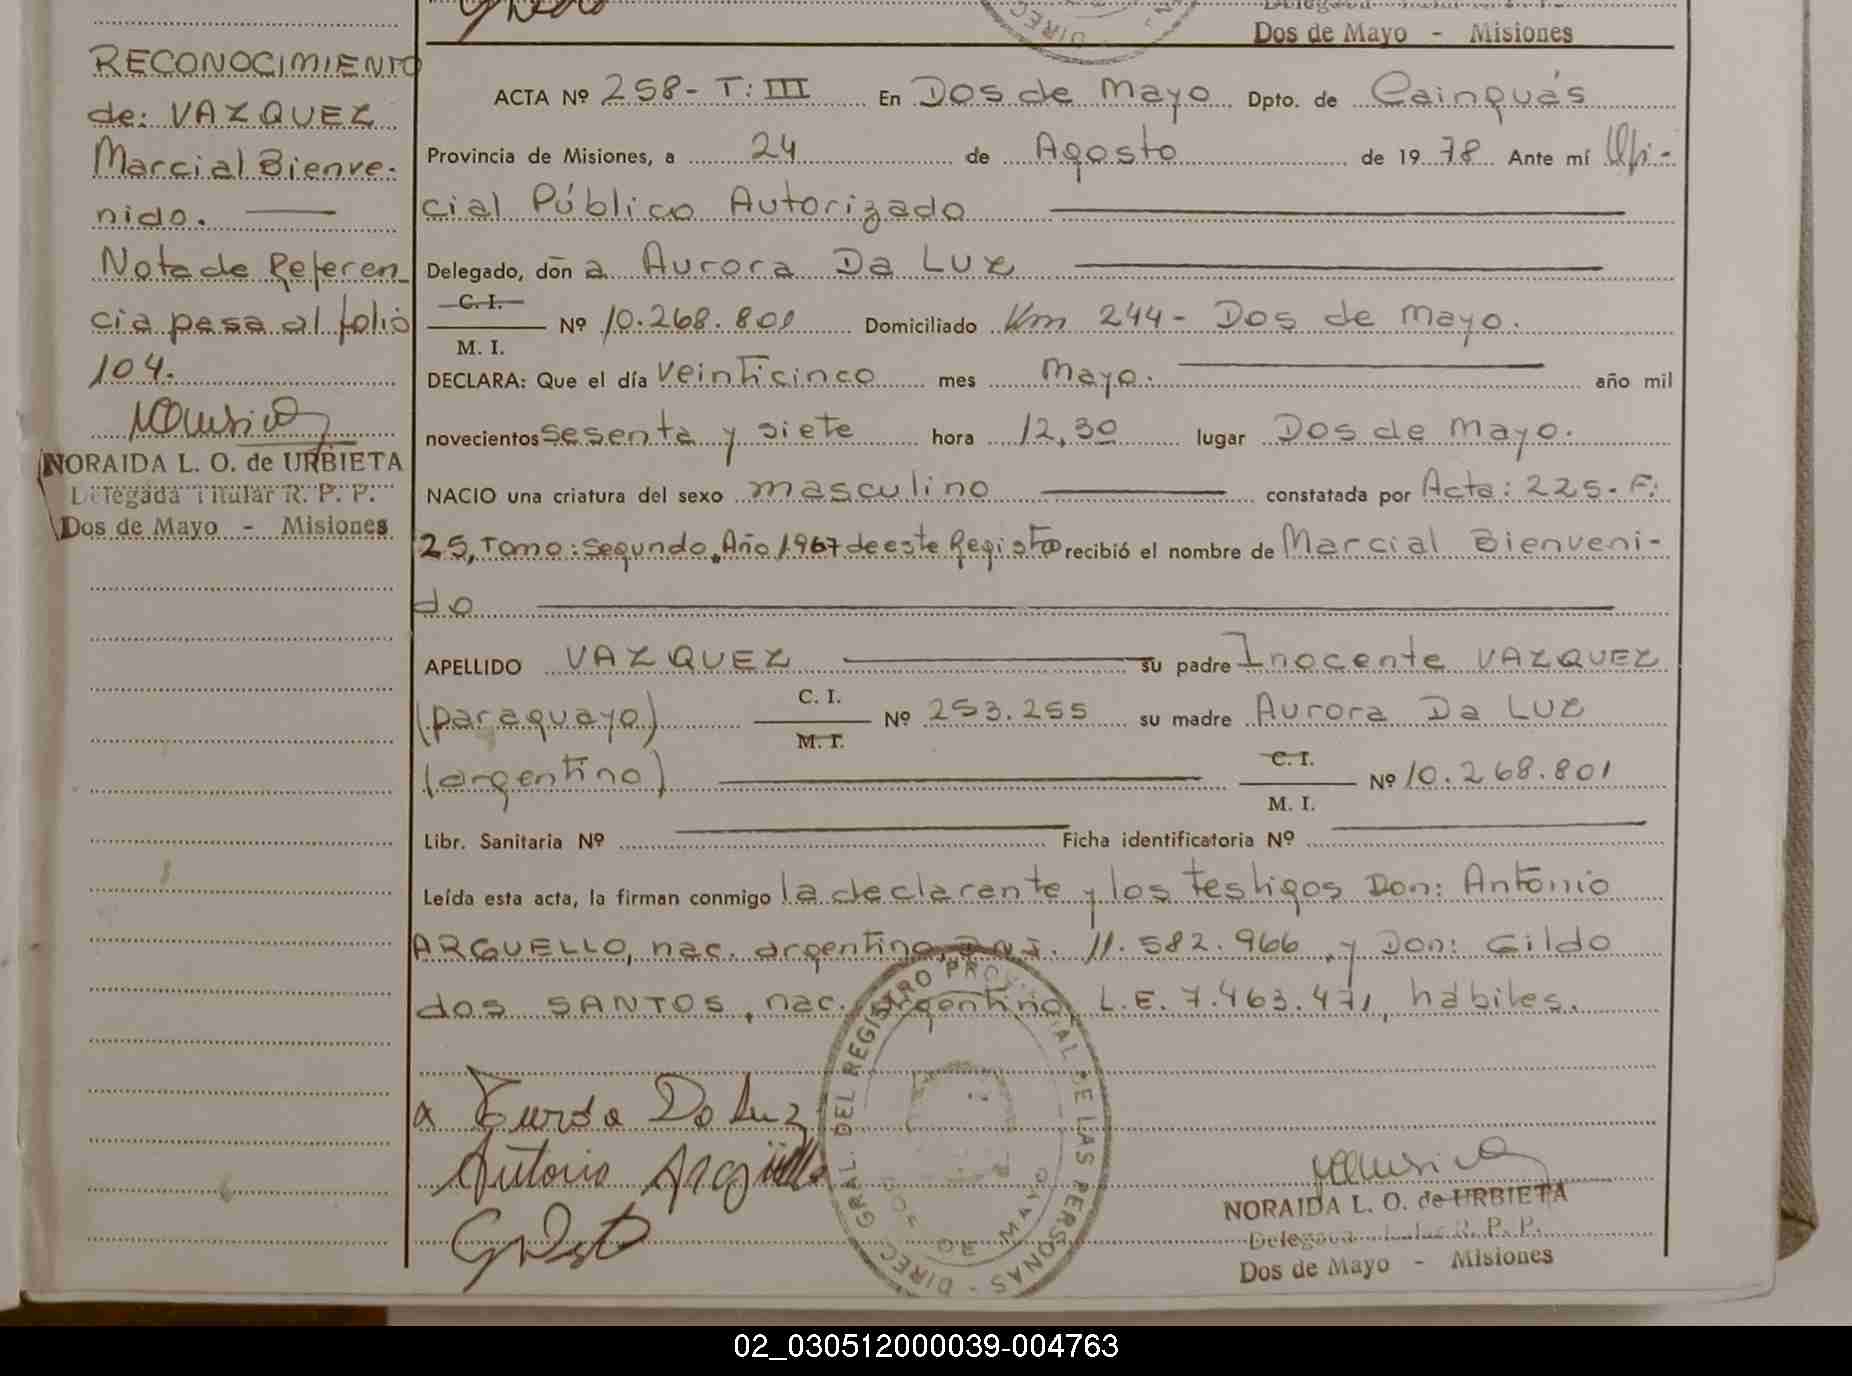 Dos de Mayo - Misiones
RECONOCIMIENTO
de: VAZQUEZ
Marcial Bienve-
nido.
Nota de Referen-
cia pasa al folio
104.
NORAIDA L. O. de URBIETA
Delegada Titular R. P. P.
Dos de Mayo - Misiones
ACTA Nº 258- T: III En Dos de Mayo Dpto. de Cainguás
Provincia de Misiones, a 24 de Agosto de 19 78 Ante mí Ofi-
cial Público Autorizado
Delegado, don a Aurora Da Luz
C. I.
Nº 10.268.801 Domiciliado Km 244- Dos de Mayo.
M. I.
DECLARA: Que el día veinticinco mes Mayo. año mil
novecientos sesenta y siete hora 12,30 lugar Dos de Mayo.
NACIO una criatura del sexo masculino constatada por Acta: 225- F:
25, Tomo: Segundo, Año 1967 de este Registro recibió el nombre de Marcial Bienveni-
do
APELLIDO VAZQUEZ su padre Inocente VAZQUEZ
(paraguayo) C. I. Nº 253.255 su madre Aurora Da Luz
M. I.
(argentino) C. I. Nº 10.268.801
M. I.
Libr. Sanitaria Nº Ficha identificatoria Nº
Leída esta acta, la firman conmigo la declarante y los testigos Don: Antonio
ARGUELLO, nac. argentino, D.N.I. 11.582.966, y Don: Gildo
dos SANTOS, nac. argentino, L.E. 7.463.471, hábiles.
x Aurora Da Luz
Antonio Argüello
DIREC. GRAL. DEL REGISTRO PROVINCIAL DE LAS PERSONAS
DOS DE MAYO
NORAIDA L. O. de URBIETA
Delegada Titular R. P. P.
Dos de Mayo - Misiones
02_030512000039-004763